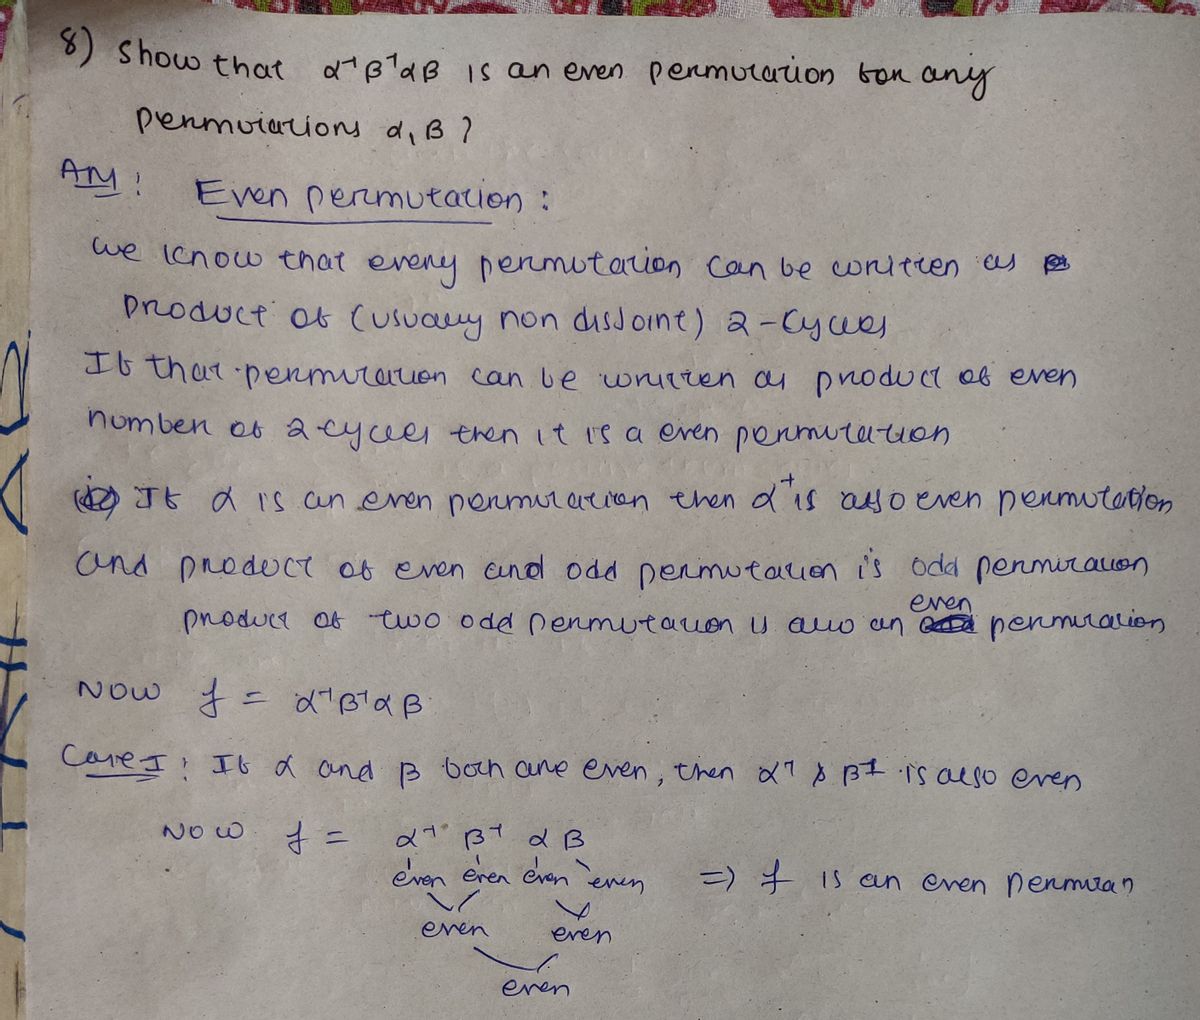 8) Show that α⁻¹β⁻¹αβ is an even permutation for any
permutations α, β ?
Ans : Even permutation :
we know that every permutation can be written as
product of (usually non disjoint) 2-cycles
If that permutation can be written as product of even
number of 2 cycles then it is a even permutation
If α is an even permutation then α⁻¹ is also even permutation
and product of even and odd permutation is odd permutation
product of two odd permutation is also an even permutation
Now f = α⁻¹β⁻¹αβ
Case I : If α and β both are even, then α⁻¹ & β⁻¹ is also even
Now f = α⁻¹ β⁻¹ α β
even even even even ⇒ f is an even permutan
even even
even